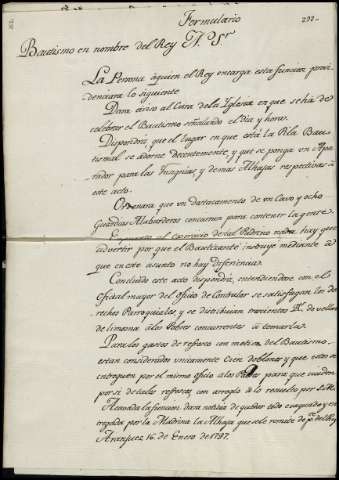 Formulario
Bautismo en nombre del Rey N. Sr.
La Persona à quien el Rey encarga esta funcion, providenciará lo siguiente
Dará aviso al Cura de la Iglesia en que se há de
celebrar el Bautismo señalando el dia y hora.
Dispondrá que el lugar en que está la Pila Bau-
tismal se adorne decentemente, y que se ponga un Apa-
rador para las Insignias y demas Alhajas respectivas à
este acto.
Ordenará que un destacamento de un Cavo y ocho
Guardias Alabarderos concurran para contener la gente.
hay que
advertir por que el Bautizante instruye mediante a
que en este asunto no hay diferencia.
Concluido este acto dispondrá, entendiendose con el
Oficial mayor del Oficio de Contralor se satisfagan los de-
rechos Parroquiales, y se distribuian trescientos Rs. de vellon
de limosna à los Pobres concurrentes à tomarla.
Para los gastos de refresco con motivo del Bautismo
estan considerados unicamente doce doblones, y que estos se
entreguen por el mismo oficio à los para que cuiden
por sí de tales refrescos, con arreglo à lo resuelto por S.M.
Acavada la funcion dará noticia de quedar todo evaquado y en-
tregada por la Madrina la Alhaja que se le remite de
Aranjuez 16 de Enero de 1787.